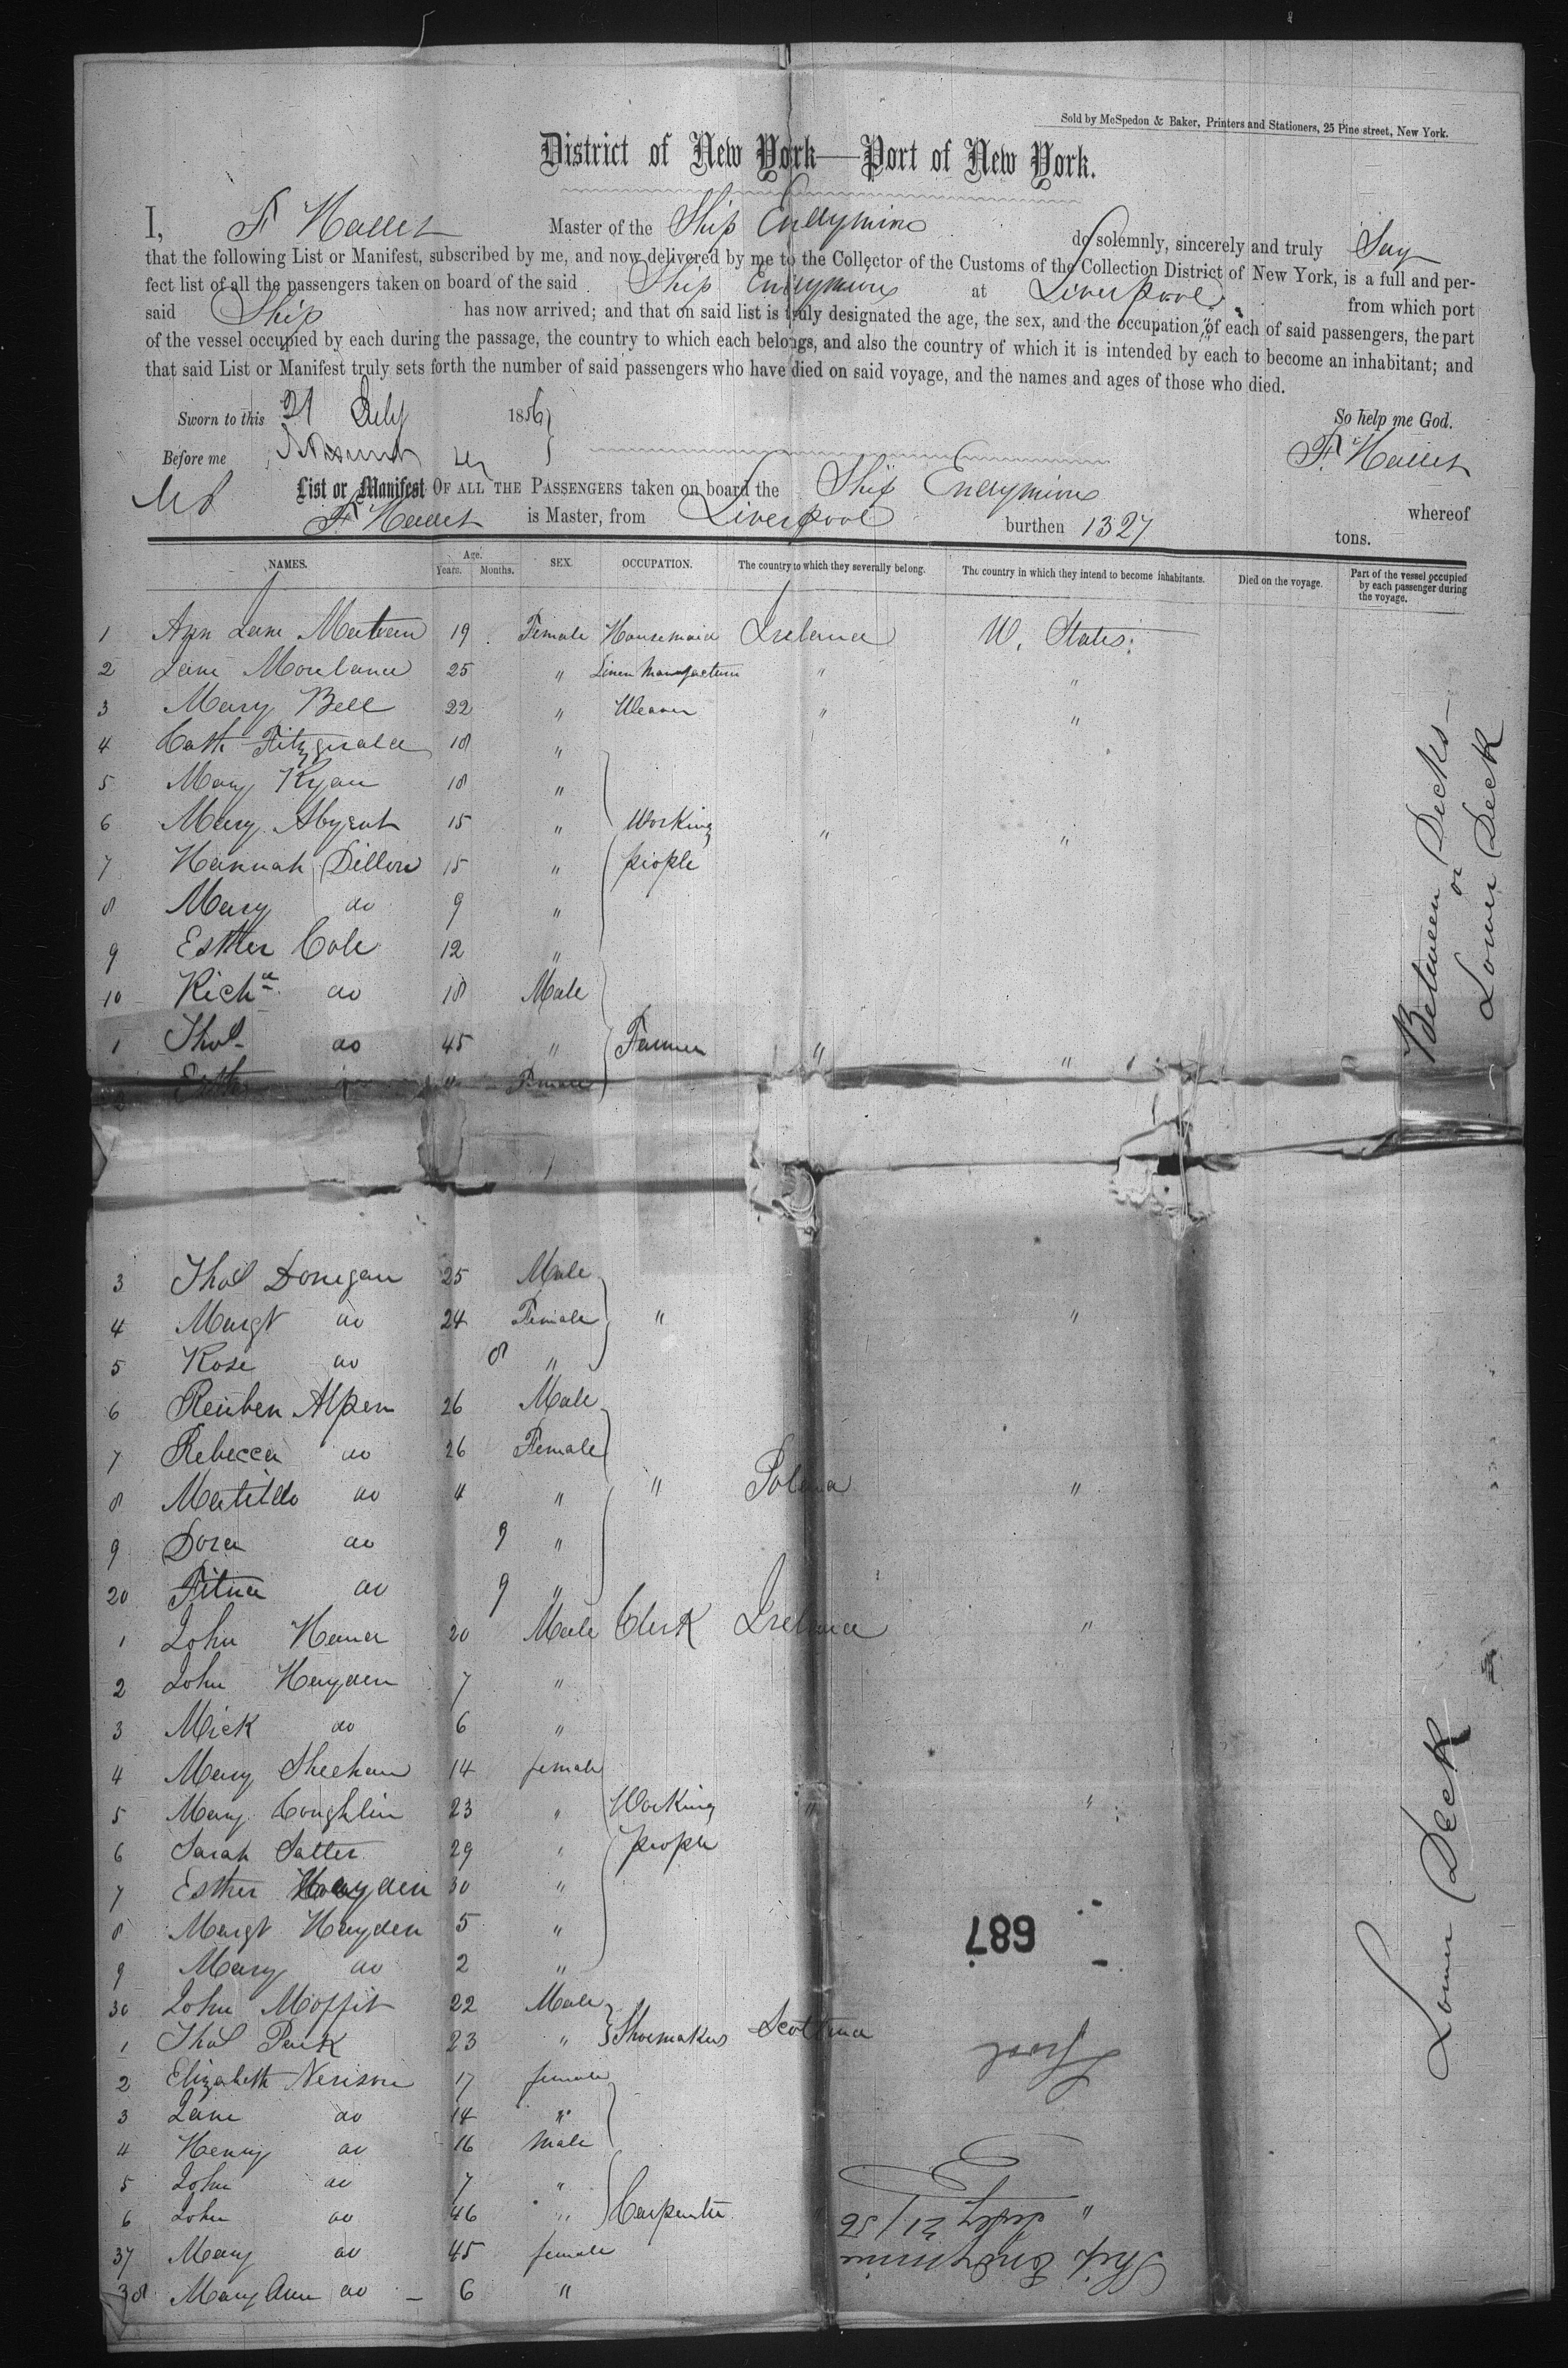 Sold by McSpedon & Baker, Printers and Stationers, 25 Pine street, New York.
District of New York—Port of New York.
I, F Hallet Master of the Ship Endymion do solemnly, sincerely and truly Say
that the following List or Manifest, subscribed by me, and now delivered by me to the Collector of the Customs of the Collection District of New York, is a full and per-
fect list of all the passengers taken on board of the said Ship Endymion at Liverpool from which port
said Ship has now arrived; and that on said list is truly designated the age, the sex, and the occupation of each of said passengers, the part
of the vessel occupied by each during the passage, the country to which each belongs, and also the country of which it is intended by each to become an inhabitant; and
that said List or Manifest truly sets forth the number of said passengers who have died on said voyage, and the names and ages of those who died.
Sworn to this 21 July 1856 So help me God.
Before me F. Hallet
List or Manifest OF ALL THE PASSENGERS taken on board the Ship Endymion whereof
F Hallet is Master, from Liverpool burthen 1327 tons.
NAMES. Age. Years. Months. SEX. OCCUPATION. The country to which they severally belong. The country in which they intend to become inhabitants. Died on the voyage. Part of the vessel occupied by each passenger during the voyage.
1 Ann Jane 19 Female Housemaid Ireland U. States
2 Jane 25 " Linen " "
3 Mary Bell 22 " Weaver " "
4 Cath Fitzgerald 18 "
5 Mary Ryan 18 "
6 Mary 15 " Working " "
7 Hannah Dillon 15 " people
8 Mary do 9 "
9 Esther Cole 12 "
10 Richd do 18 Male
1 Thos do 45 " Farmer " "
2 Esther " Female
3 Thos Donegan 25 Male
4 Margt do 24 Female " "
5 Rose do 8 "
6 Reuben Alpern 26 Male
7 Rebecca do 26 Female
8 Matilda do 4 " " Poland "
9 Dora do 9 "
20 do 9 "
1 John Hana 20 Male Clerk Ireland "
2 John Hayden 7 "
3 Mick do 6 "
4 Mary Sheehan 14 female
5 Mary Coughlin 23 " Working " "
6 Sarah Salter 29 " people
7 Esther Hayden 30 "
8 Margt Hayden 5 "
9 Mary do 2 "
30 John Moffit 22 Male
1 Thos Park 23 " Shoemakers Scotland
2 Elizabeth 17 female
3 Jane do 14 "
4 Henry do 16 male
5 John do 7 "
6 John do 46 " Carpenter " "
37 Mary do 45 female
38 Mary Ann do 6 "
Between Decks—
or
Lower Deck
Lower Deck
687
Lpool
July 21/56
Ship Endymion